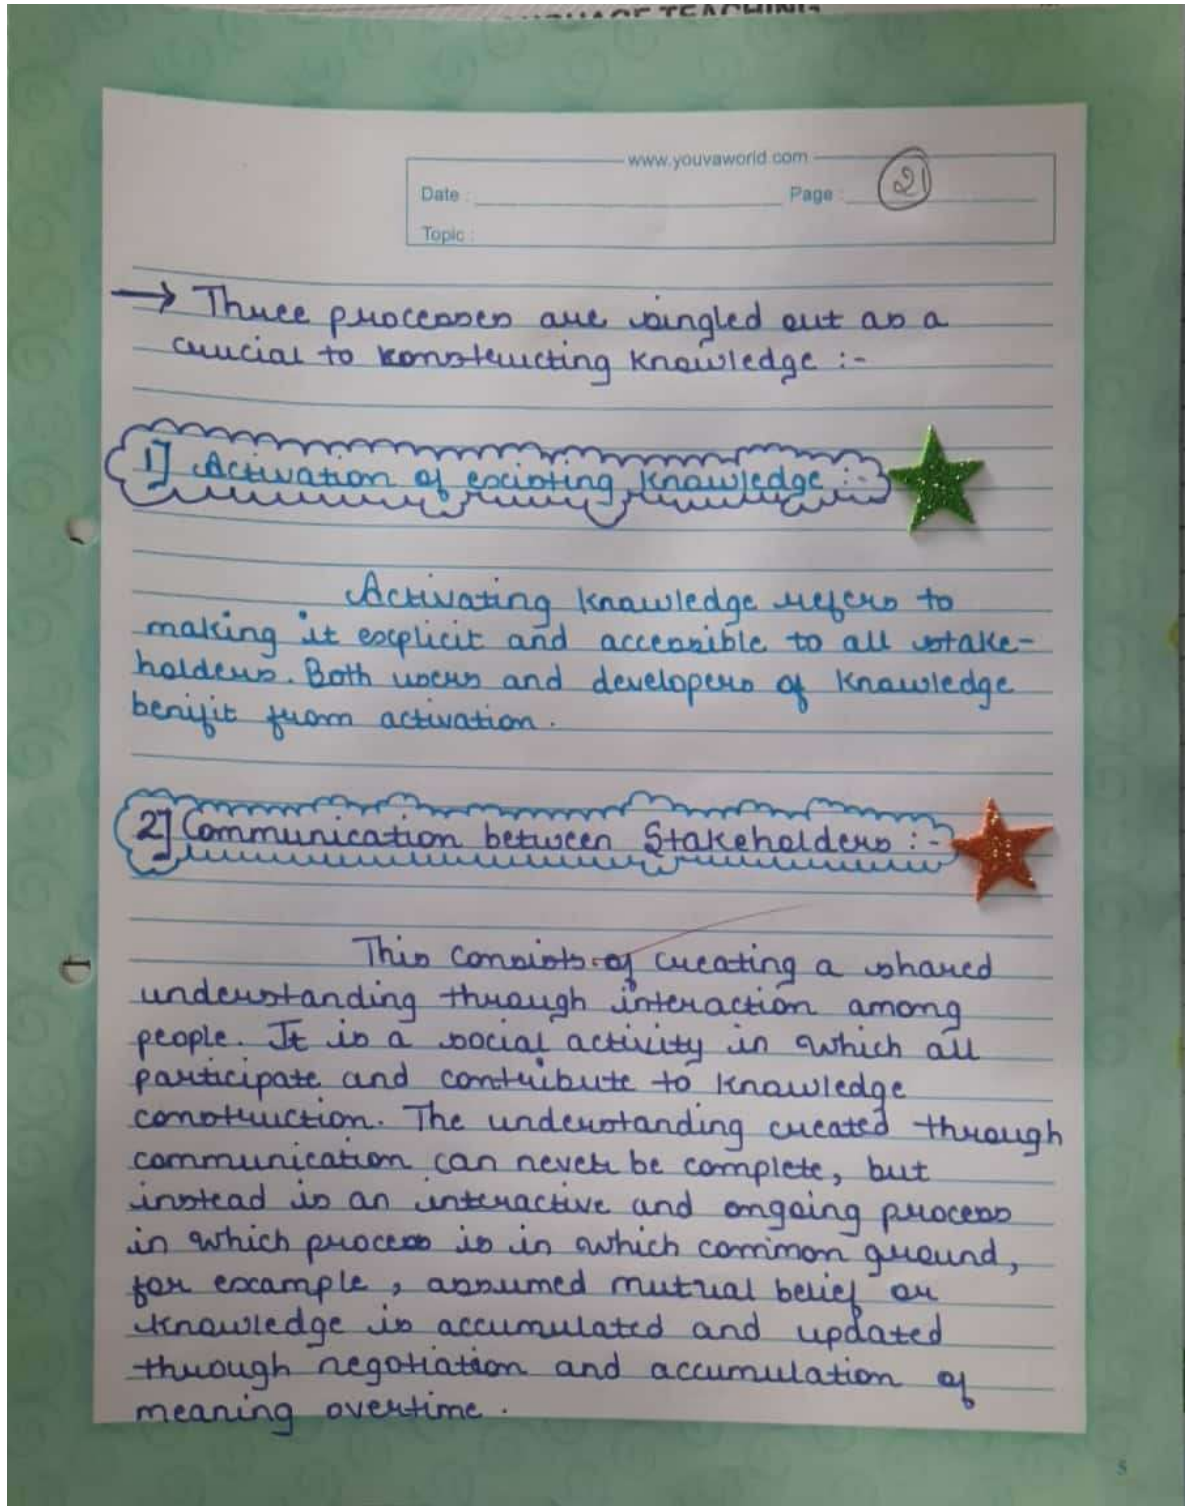 LANGUAGE TEACHING
www.youvaworld.com
Date : Page : 21
Topic :
→ Three processes are singled out as a
crucial to konstructing knowledge :-
1] Activation of existing knowledge :-
Activating knowledge refers to
making it explicit and accessible to all stake-
holders. Both users and developers of knowledge
benifit from activation.
2] Communication between Stakeholders :-
This consists of creating a shared
understanding through interaction among
people. It is a social activity in which all
participate and contribute to knowledge
construction. The understanding created through
communication can never be complete, but
instead is an interactive and ongoing process
in which process is in which common ground,
for example, assumed mutual belief or
knowledge is accumulated and updated
through negotiation and accumulation of
meaning overtime.
5